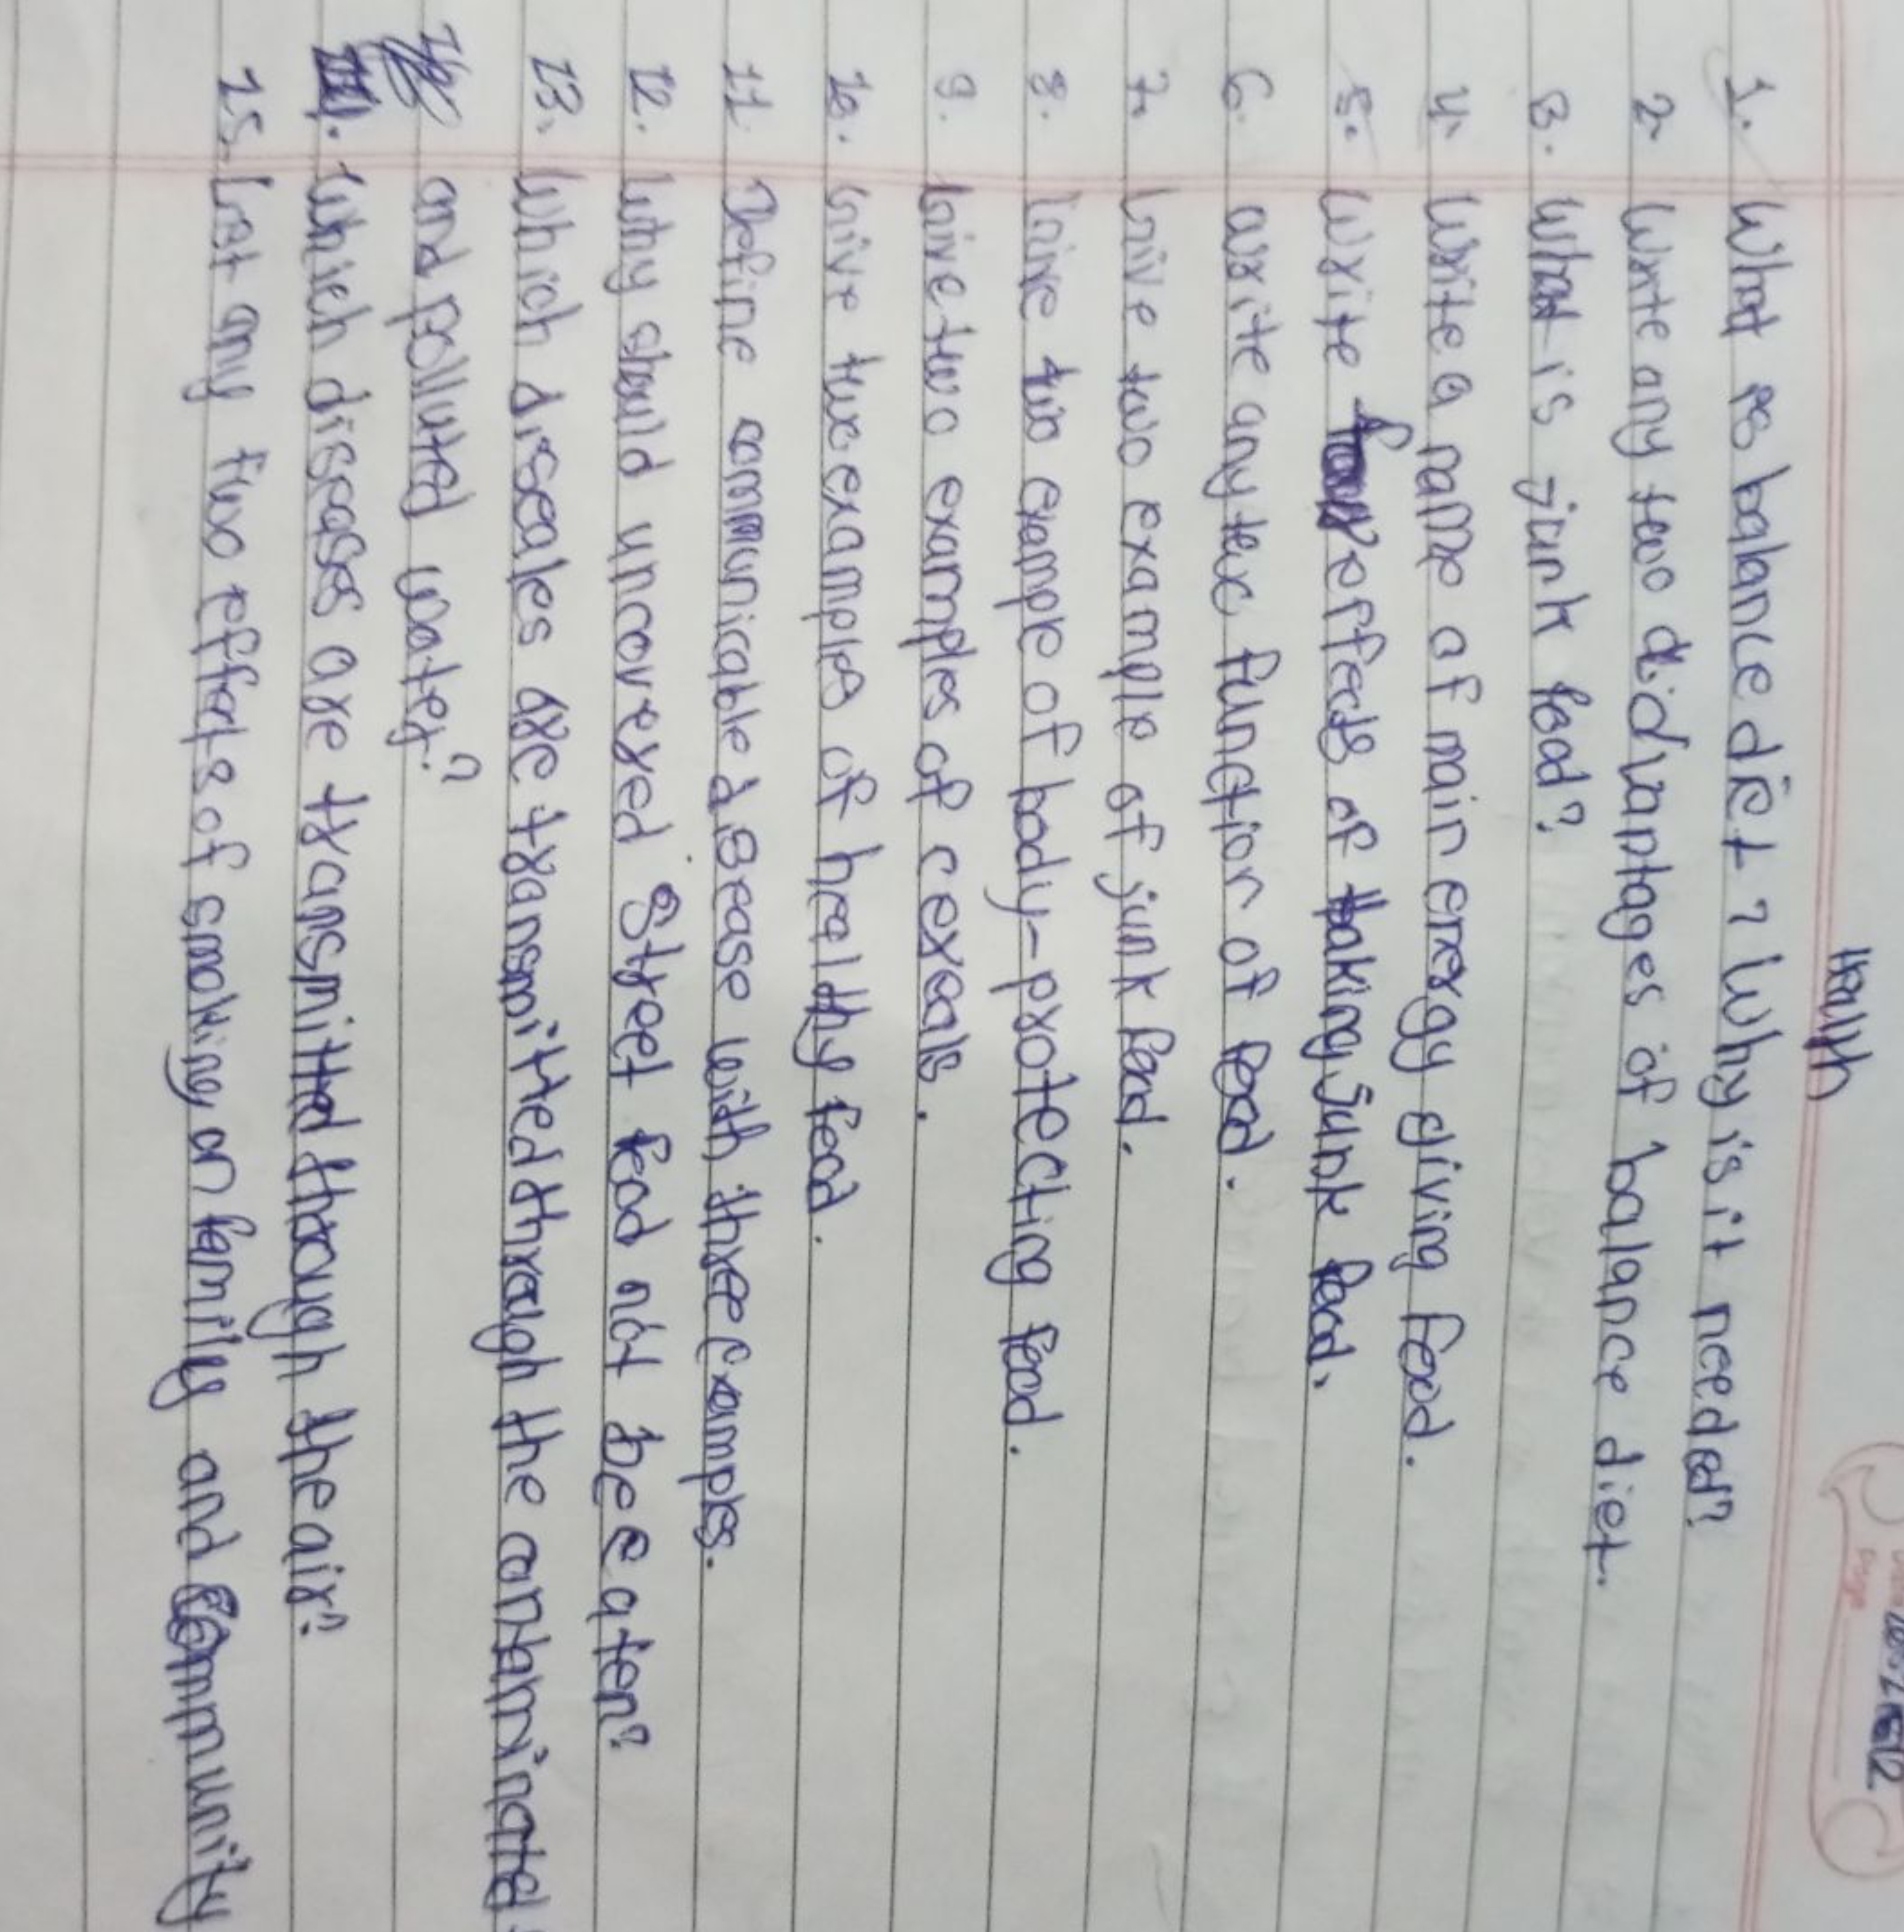 Health
1. What is balance diet? Why is it needed?
2. Write any two advantages of balance diet.
3. What is junk food?
4. Write a name of main energy giving food.
5. Write effects of taking junk food.
6. write any two function of food.
7. Give two example of junk food.
8. Give two example of body-protecting food.
9. Give two examples of cereals.
10. Give two examples of healthy food.
11. Define communicable disease with three examples.
12. Why should uncovered street food not be eaten?
13. Which diseases are transmitted through the contaminated
and polluted water?
14. Which diseases are transmitted through the air?
15. List any two effects of smoking on family and community